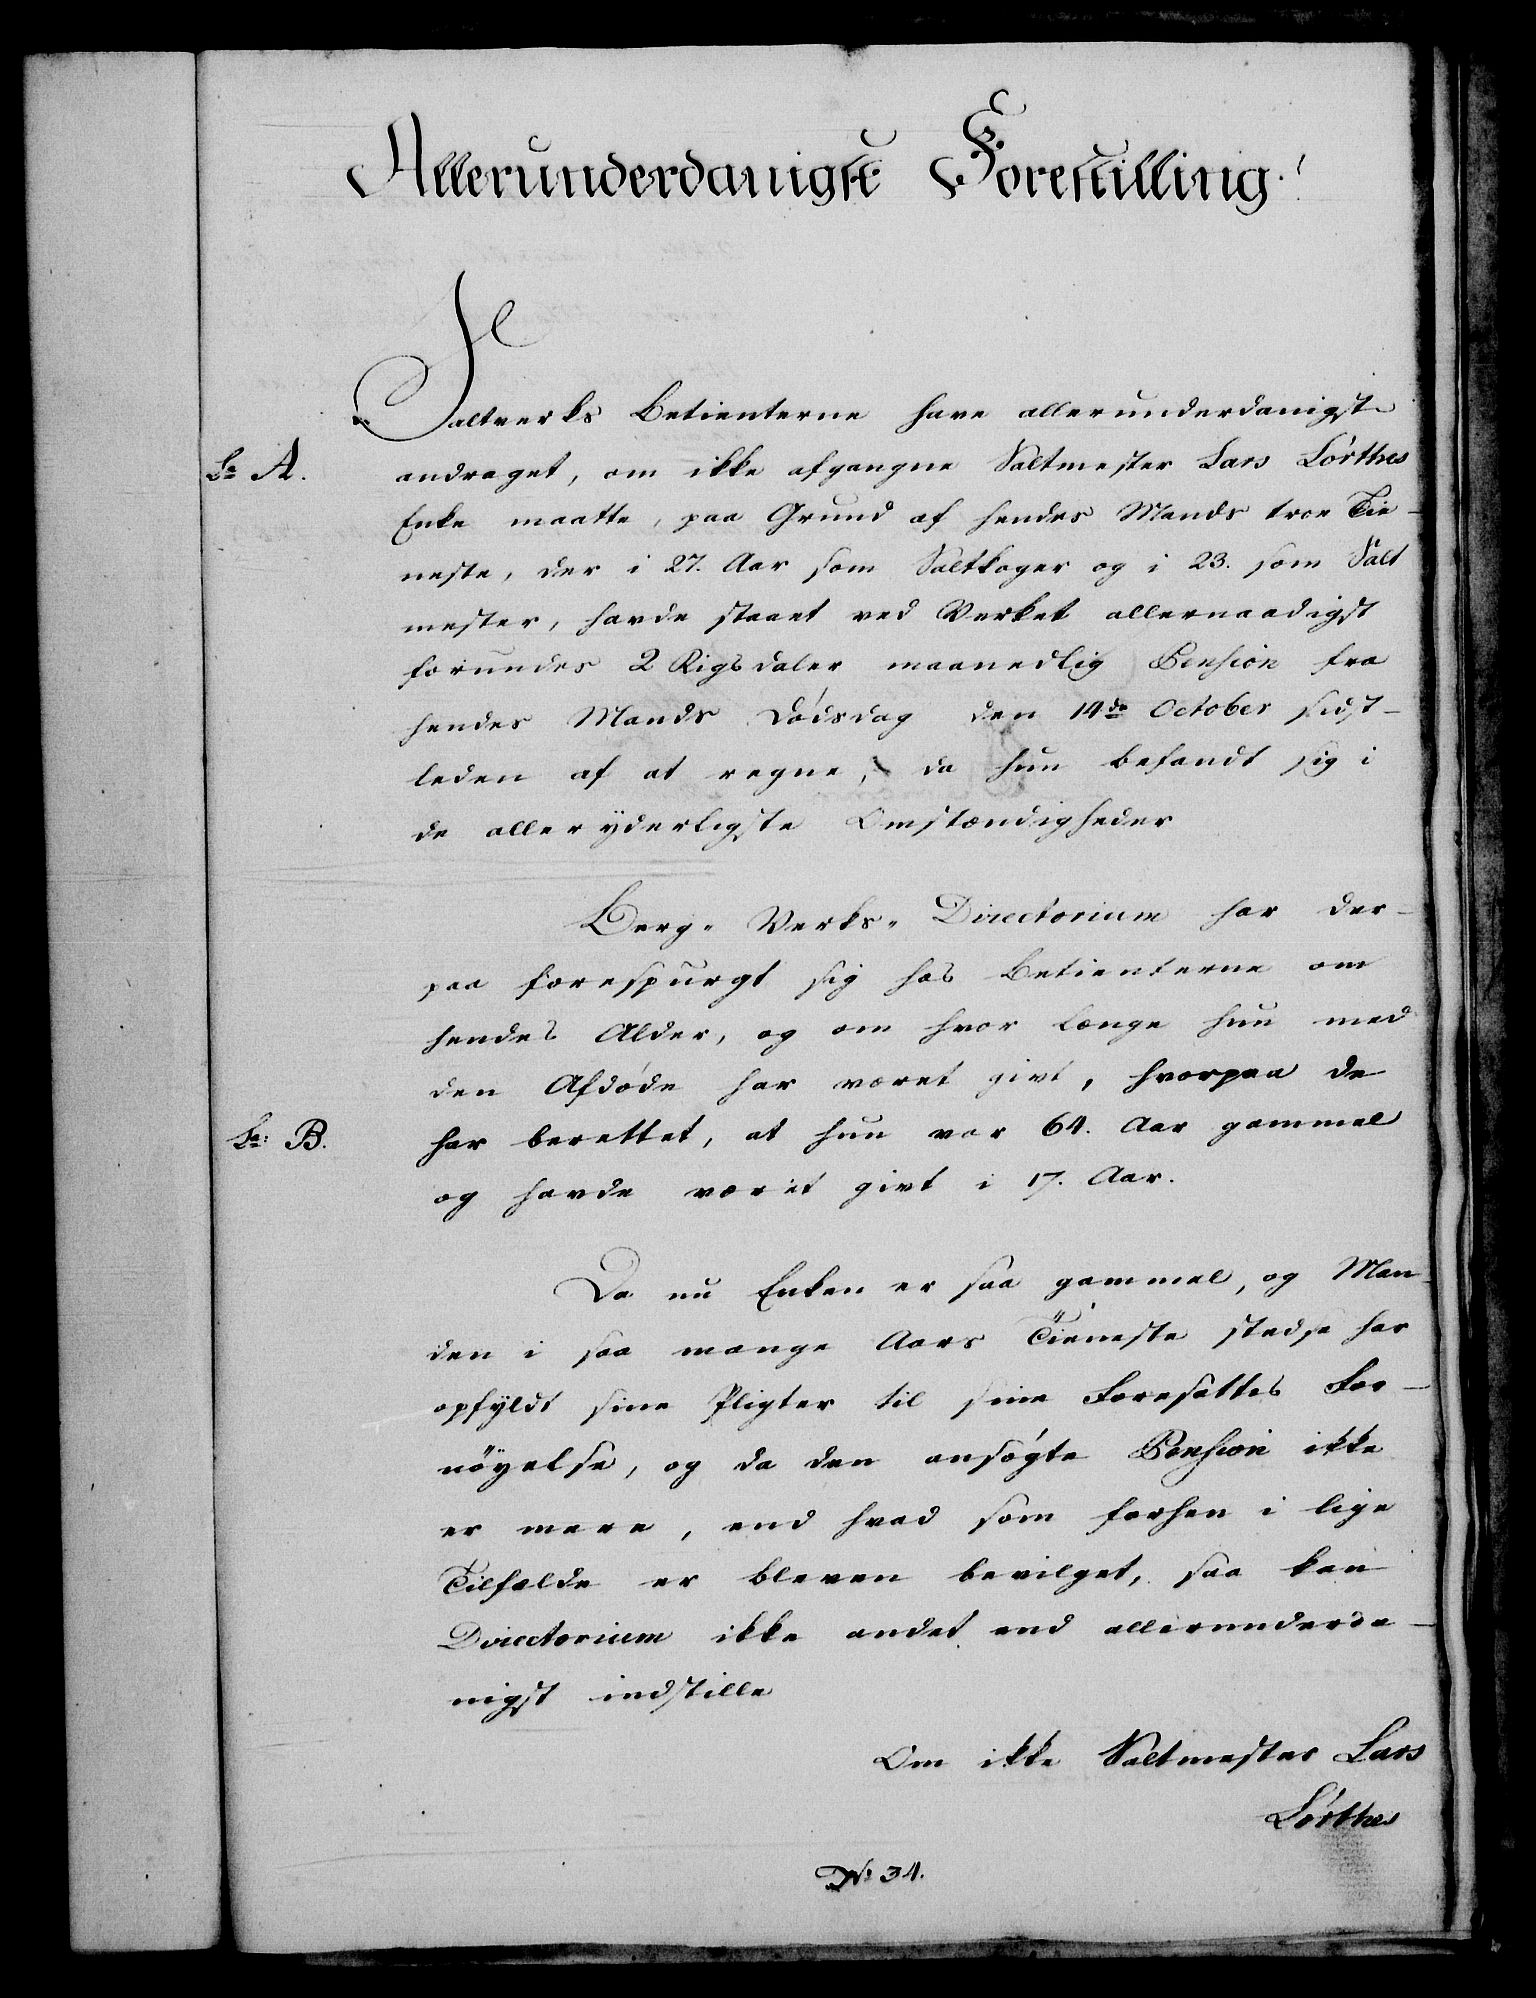 Allerunderdanigst Forestilling!
Saltverks Betienterne have allerunderdanigst
La A. andraget, om ikke afgangne Saltmester Lars Lörthes
Enke maatte, paa Grund af hendes Mands troe Tie-
neste, der i 27. Aar som Saltkoger og i 23. som Salt
mester, havde staaet ved Verket allernaadigst
forundes 2 Rigsdaler maanedlig Pension fra
hendes Mands Dödsdag den 14de October sidst-
leden af at regne, da hun befandt sig i
de alleryderligste Omstændigheder
Berg- Verks- Directorium har der-
paa forespurgt sig hos Betienterne om
hendes Alder, og om hvor længe hun med
den Afdöde har været givt, hvorpaa de
La: B. har berettet, at hun var 64. Aar gammel
og havde været givt i 17. Aar.
Da nu Enken er saa gammel, og Man-
den i saa mange Aars Tieneste stedse har
opfyldt sine Pligter til sine Foresattes For-
nöyelse, og da den ansögte Pension ikke
er mere, end hvad som forhen i lige
Tilfælde er bleven bevilget, saa kan
Directorium ikke andet end allerunderda-
nigst indstille
Om ikke Saltmester Lars
Lörthes
No 34.